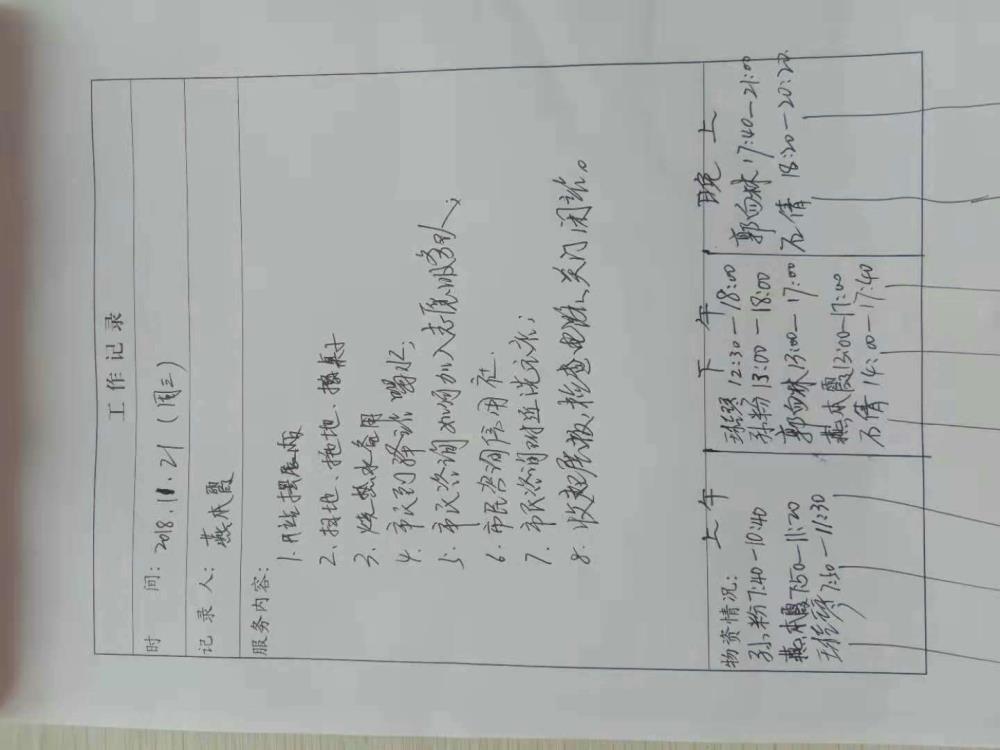 工作记录
时 间：2018.11.21（周三）
记录人：燕本霞
服务内容：
1. 开站摆展板
2、扫地、拖地、擦桌子
3、烧热水备用
4. 市民到驿站喝水；
5. 市民咨询如何加入志愿服务队；
6. 市民咨询信用社
7. 市民咨询附近洗衣店；
8. 收起展板、检查电源、关门闭站。
物资情况：
上午
孙粉 7:40-10:40
燕本霞 7:50—11:20
7:30—11:30
下午
12:30—18:00
孙粉 13:00—18:00
郭向林 13:00—17:00
燕本霞 13:00—17:00
石倩 14:00—17:40
晚上
郭向林 17:40—21:00
石倩 18:20—20:20